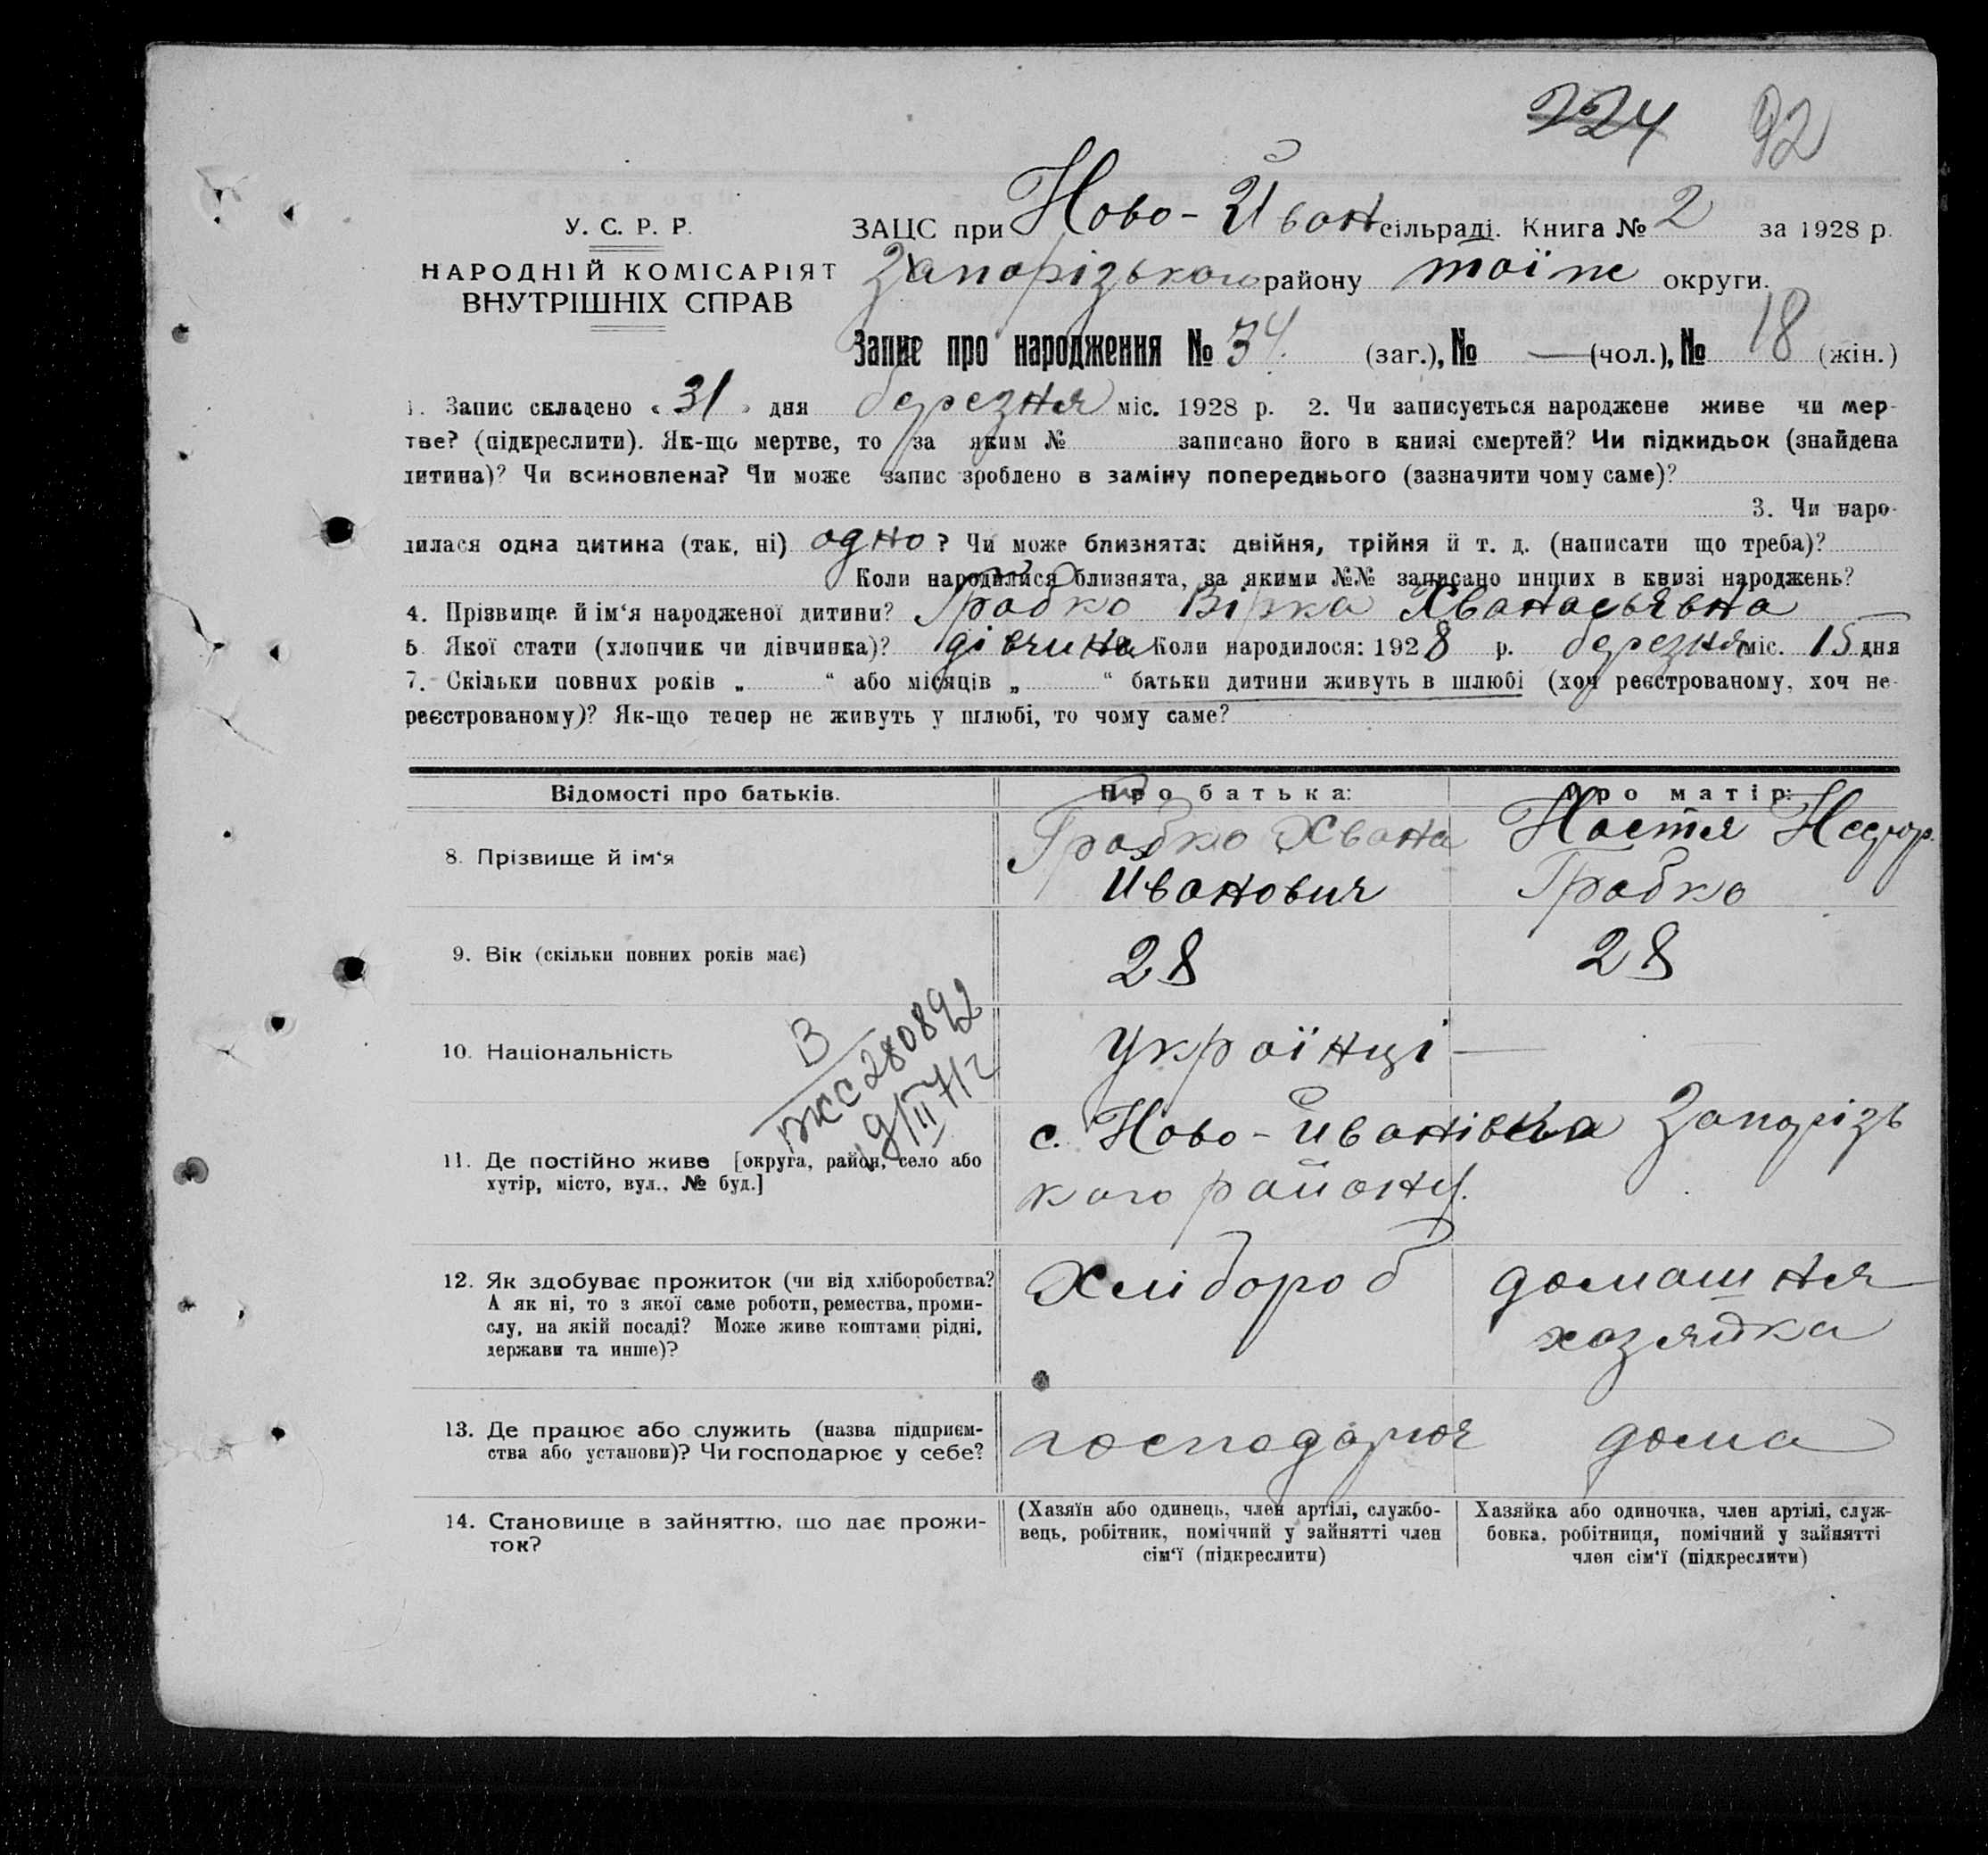 224 92
У. С. Р. Р.
НАРОДНІЙ КОМІСАРІЯТ
ВНУТРІШНІХ СПРАВ
ЗАЦС при Ново-Иван сільраді. Книга № 2 за 1928 р.
Запорізького району тоїж округи.
Запис про народження № 34. (заг.), № — (чол.), № 18 (жін.)
1. Запис складено « 31 » дня березня міс. 1928 р. 2. Чи записується народжене живе чи мер-
тве? (підкреслити). Як-що мертве, то за яким № записано його в книзі смертей? Чи підкидьок (знайдена
дитина)? Чи всиновлена? Чи може запис зроблено в заміну попереднього (зазначити чому саме)?
3. Чи наро-
дилася одна дитина (так, ні) одно ? Чи може близнята: двійня, трійня й т. д. (написати що треба)?
Коли народилися близнята, за якими №№ записано инших в книзі народжень?
4. Прізвище й ім‘я народженої дитини? Грабко Вірка Хванасьявна
5. Якої стати (хлопчик чи дівчинка)? дівчина Коли народилося: 1928 р. березня міс. 15 дня
7. Скільки повних років „ “ або місяців „ “ батьки дитини живуть в шлюбі (хоч реєстрованому, хоч не-
реєстрованому)? Як-що тепер не живуть у шлюбі, то чому саме?
Відомості про батьків. Про батька: Про матір:
8. Прізвище й ім‘я Грабко Хвана Настя
Иванович Грабко
9. Вік (скільки повних років має) 28 28
10. Національність Українці —
В
280892
11. Де постійно живе [округа, район, село або
хутір, місто, вул., № буд.]
с. Ново-Иванівка Запорізь
кого району.
12. Як здобуває прожиток (чи від хліборобства?
А як ні, то з якої саме роботи, ремества, проми-
слу, на якій посаді? Може живе коштами рідні,
держави та инше)?
Хлібороб домашня
хозяйка
13. Де працює або служить (назва підприєм-
ства або установи)? Чи господарює у себе?
господарює дома
14. Становище в зайняттю, що дає прожи-
ток?
(Хазяїн або одинець, член артілі, службо-
вець, робітник, помічний у зайнятті член
сім‘ї (підкреслити)
Хазяйка або одиночка, член артілі, служ-
бовка, робітниця, помічний у зайнятті
член сім‘ї (підкреслити)